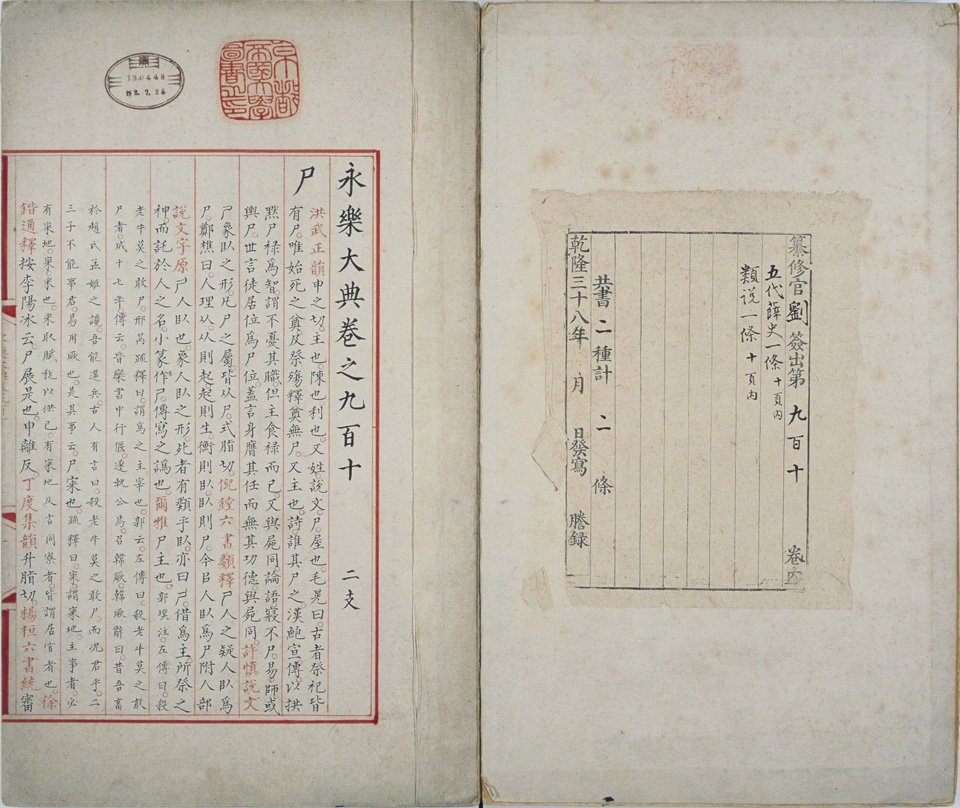 纂修官劉簽出第九百十卷
五代薛史一條十頁內
類說一條十頁內
共書二種計二條
乾隆三十八年 月 日發寫 謄錄
京都
帝國大學
圖書之印
永樂大典卷之九百十 二支
尸
洪武正韻申之切。主也。陳也。利也。又姓。說文尸。屋也。毛晃曰。古者祭祀皆
有尸。唯始死之奠及祭殤釋奠無尸。又主也。詩誰其尸之。漢鮑宣傳以拱
默尸祿為智。謂不憂其職但主食祿而已。又與屍同。論語寢不尸。易師或
輿尸。世言徒居位為尸位。蓋言身膺其任而無其功德與屍同。許慎說文
尸象臥之形。凡尸之屬。皆从尸。式脂切。倪鏜六書類釋尸人之疑人臥為
尸。鄭樵曰。人理从。从則起。起則生。衡則臥。臥則尸。今呂人臥為尸附人部
說文字原尸人臥也。象人臥之形。死者有類乎臥。亦曰尸。借為主所祭之
神。而託於人之名。小篆作尸。傳寫之譌也。爾雅尸主也。郭璞注。左傳曰。殺
老牛莫之敢尸。邢昺疏釋曰。謂為之主宰也。郭云。左傳曰。殺老牛莫之敢
尸者。成十七年傳云。晉欒書中行偃。遂執公焉。召韓厥。韓厥辭曰。昔吾畜
於趙氏。孟姬之讒。吾能違兵。古人有言曰。殺老牛莫之敢尸。而況君乎。二
三子不能事君。焉用厥也。是其事云。尸寀也。疏釋曰。寀。謂寀地。主事者。必
有寀地。寀。采也。采取賦稅以供已。有寀地及言同寮者。皆謂居官者也。徐
鍇通釋按李陽冰云。尸展是也。申離反。丁度集韻升脂切。楊桓六書統審